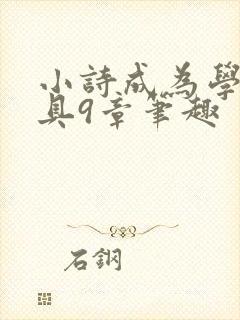 小詩成為學
具9章筆趣
石鋼